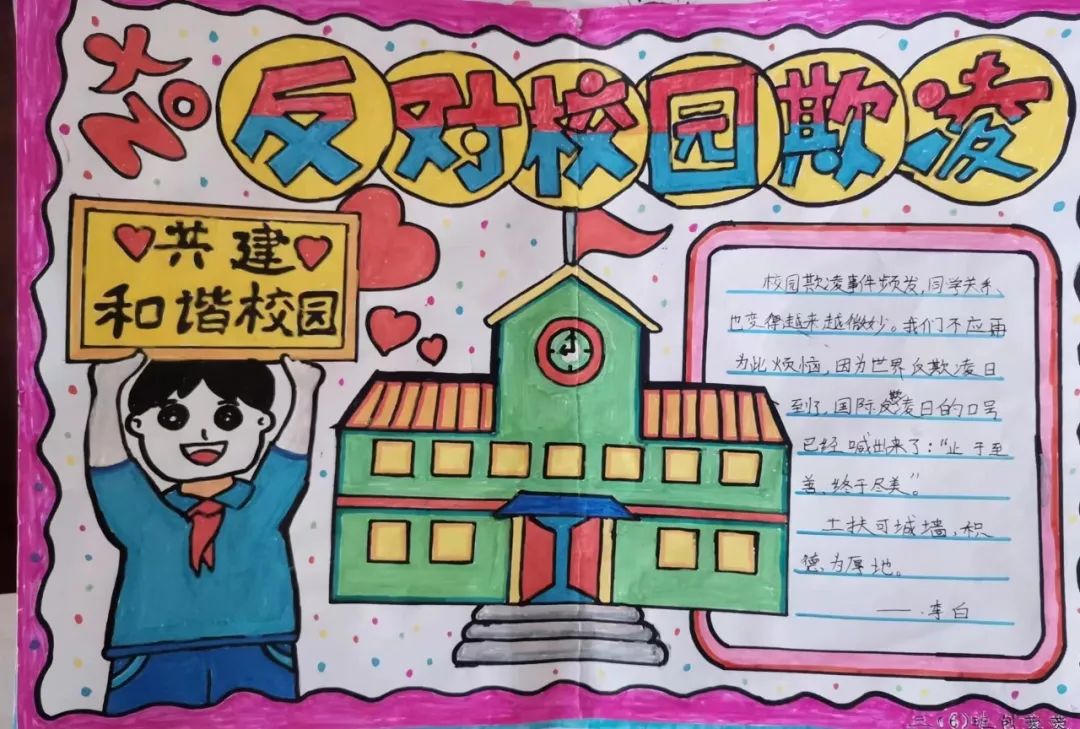 NO
反对校园欺凌
共建
和谐校园
校园欺凌事件频发,同学关系
也变得越来越微妙。我们不应再
为此烦恼,因为世界反欺凌日
到了,国际反欺凌日的口号
已经喊出来了:“止于至
善、终于尽美”。
土扶可城墙,积
德为厚地。
——李白
三(6)班